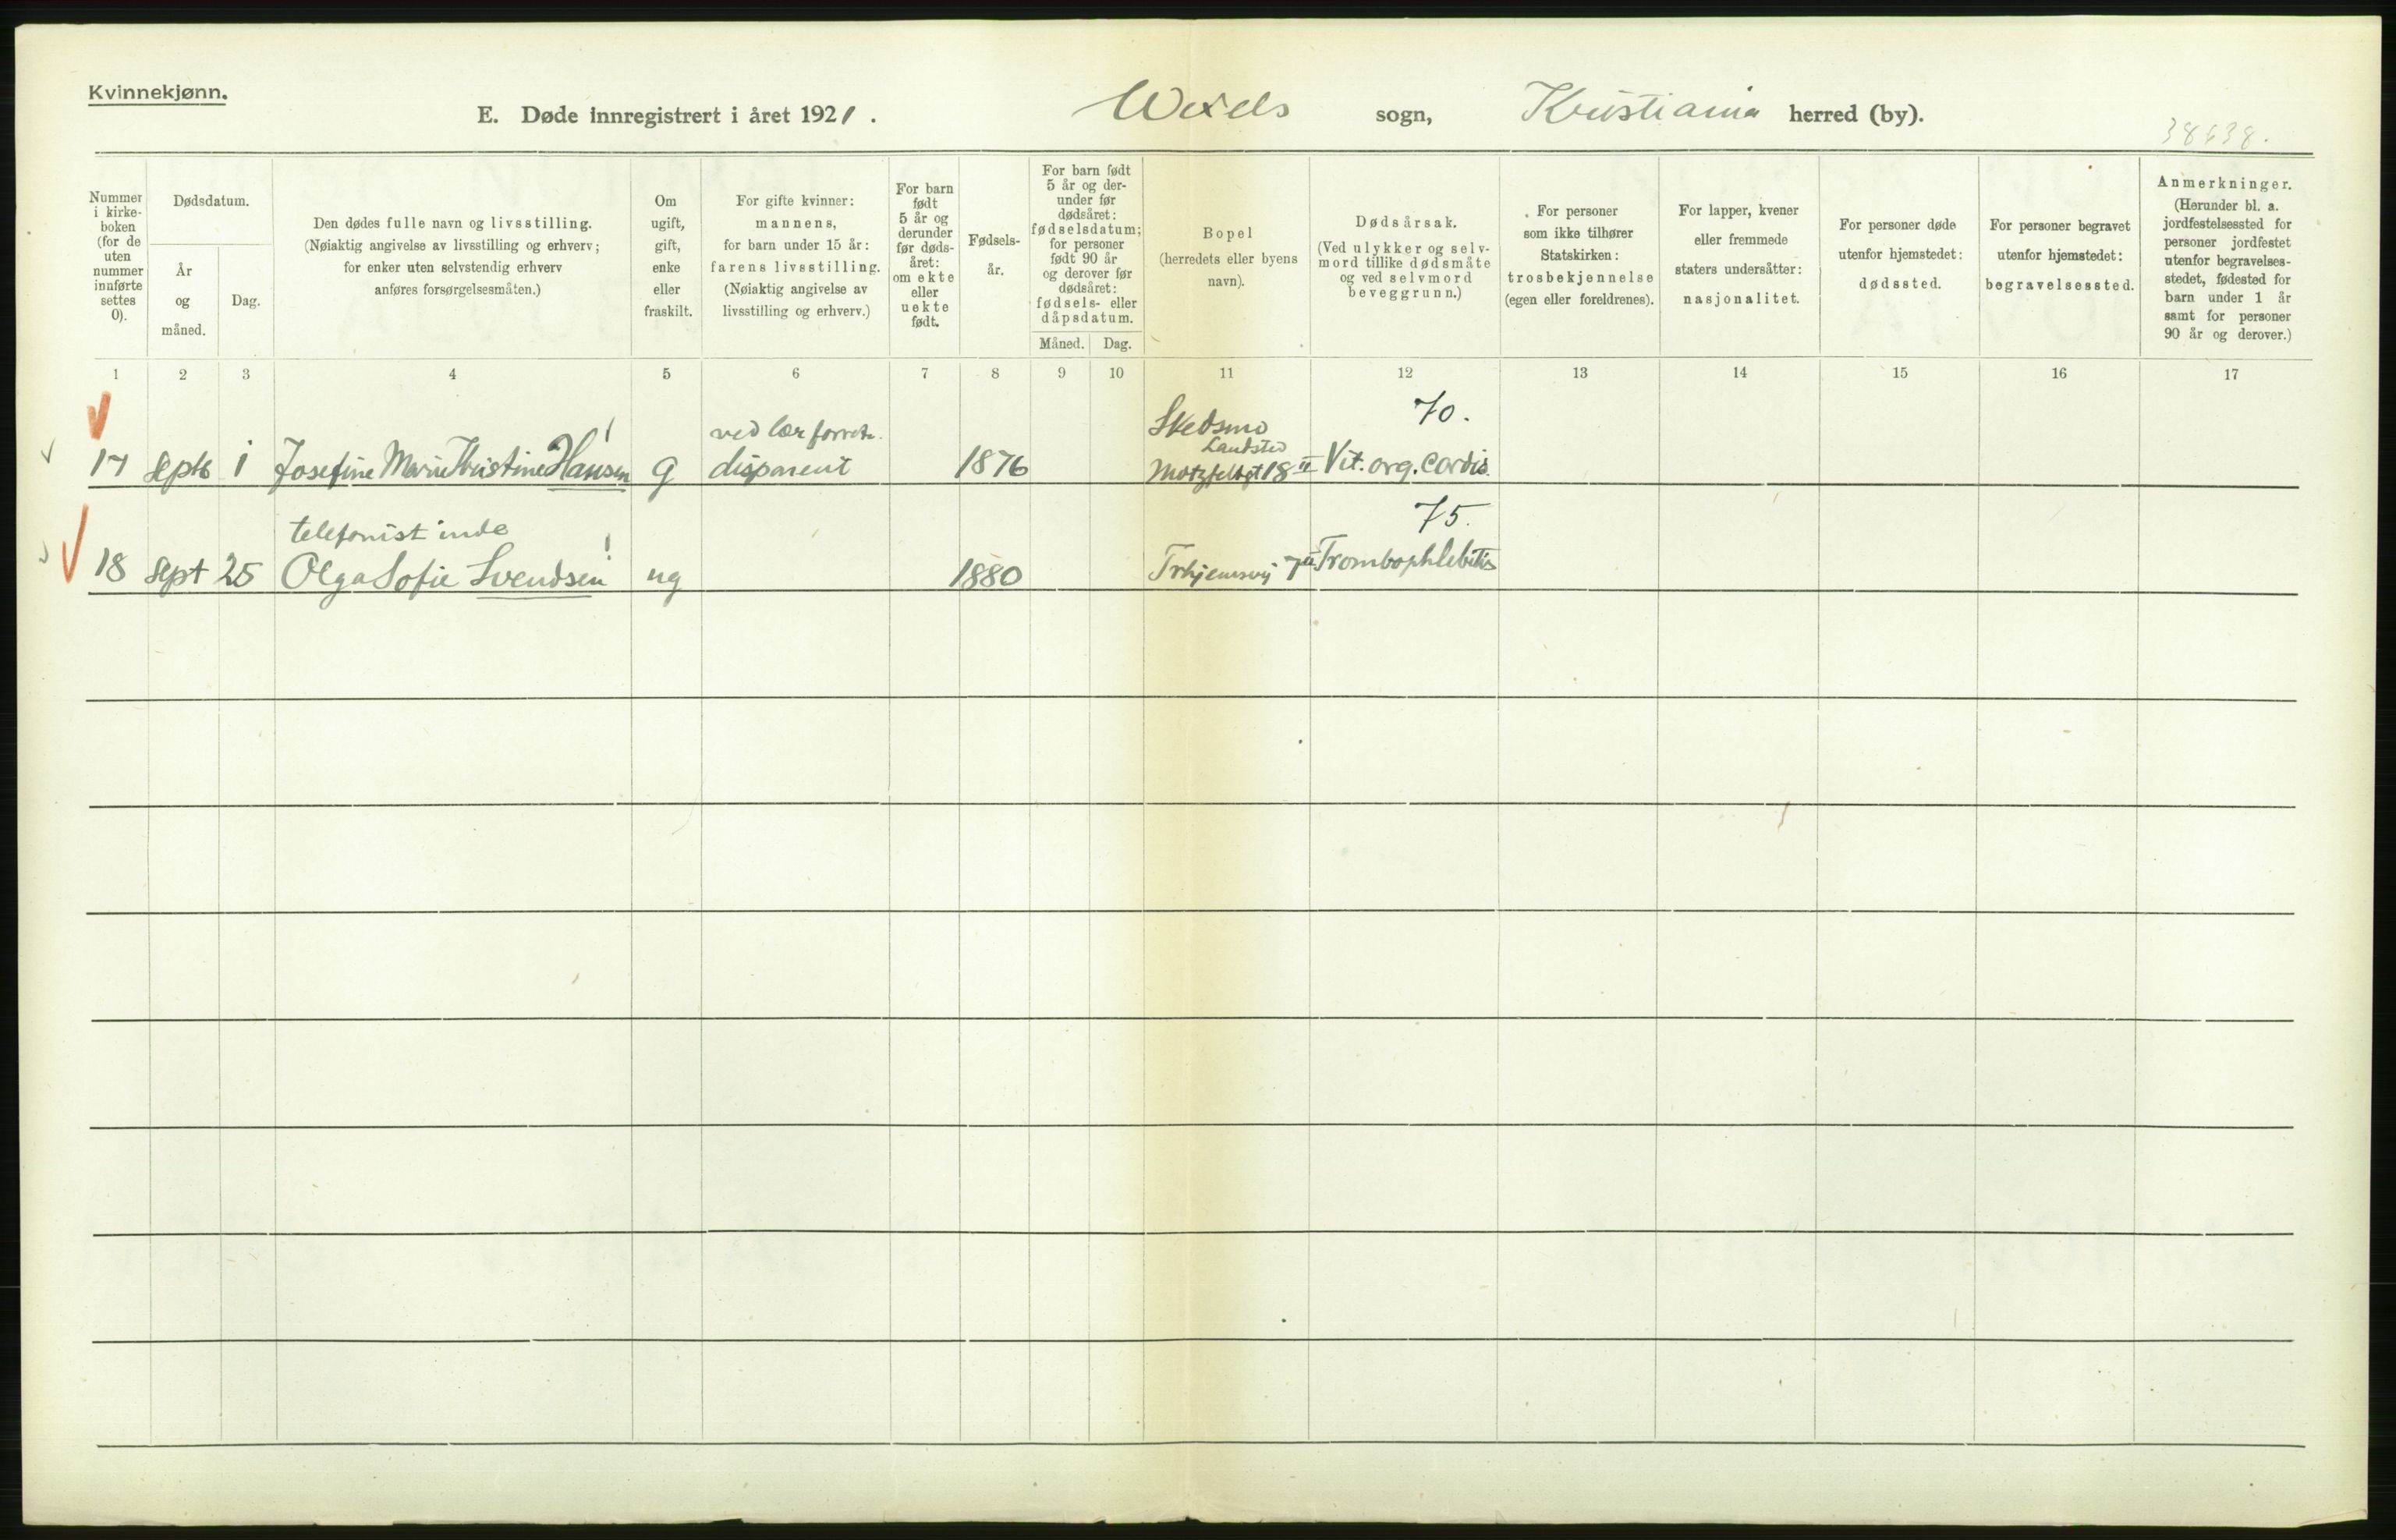 Kvinnekjønn.
E. Døde innregistrert i året 1921. Wexels sogn, Kristiania herred (by).
Nummer i kirke- boken (for de uten nummer innførte settes 0).
Dødsdatum.
År og måned.
Dag.
Den dødes fulle navn og livsstilling.
(Nøiaktig angivelse av livsstilling og erhverv;
for enker uten selvstendig erhverv
anføres forsørgelsesmåten.)
Om ugift, gift, enke eller fraskilt.
For gifte kvinner:
mannens,
for barn under 15 år:
farens livsstilling.
(Nøiaktig angivelse av
livsstilling og erhverv.)
For barn født 5 år og derunder før døds- året: om ekte eller uekte født.
Fødsels- år.
For barn født 5 år og der- under før dødsåret: fødselsdatum; for personer født 90 år og derover før dødsåret: fødsels- eller dåpsdatum.
Måned. Dag.
Bopel
(herredets eller byens
navn).
Dødsårsak.
(Ved ulykker og selv-
mord tillike dødsmåte
og ved selvmord
beveggrunn.)
For personer
som ikke tilhører
Statskirken:
trosbekjennelse
(egen eller foreldrenes).
For lapper, kvener
eller fremmede
staters undersåtter:
nasjonalitet.
For personer døde
utenfor hjemstedet:
dødssted.
For personer begravet
utenfor hjemstedet:
begravelsessted.
Anmerkninger.
(Herunder bl. a.
jordfestelsessted for
personer jordfestet
utenfor begravelses-
stedet, fødested for
barn under 1 år
samt for personer
90 år og derover.)
1 2 3 4 5 6 7 8 9 10 11 12 13 14 15 16 17
ved lær forretn. Skedsmo 70.
Landsted
17 Septb 1 Josefine Marie Kristine Hansen g disponent 1876 Motzfeldtgt 18 II Vit. org. cordis.
telefonistinde 75.
18 Sept 25 Olga Sofie Svendsen ug 1880 Trhjemsvj 7 II Trombophlebitis